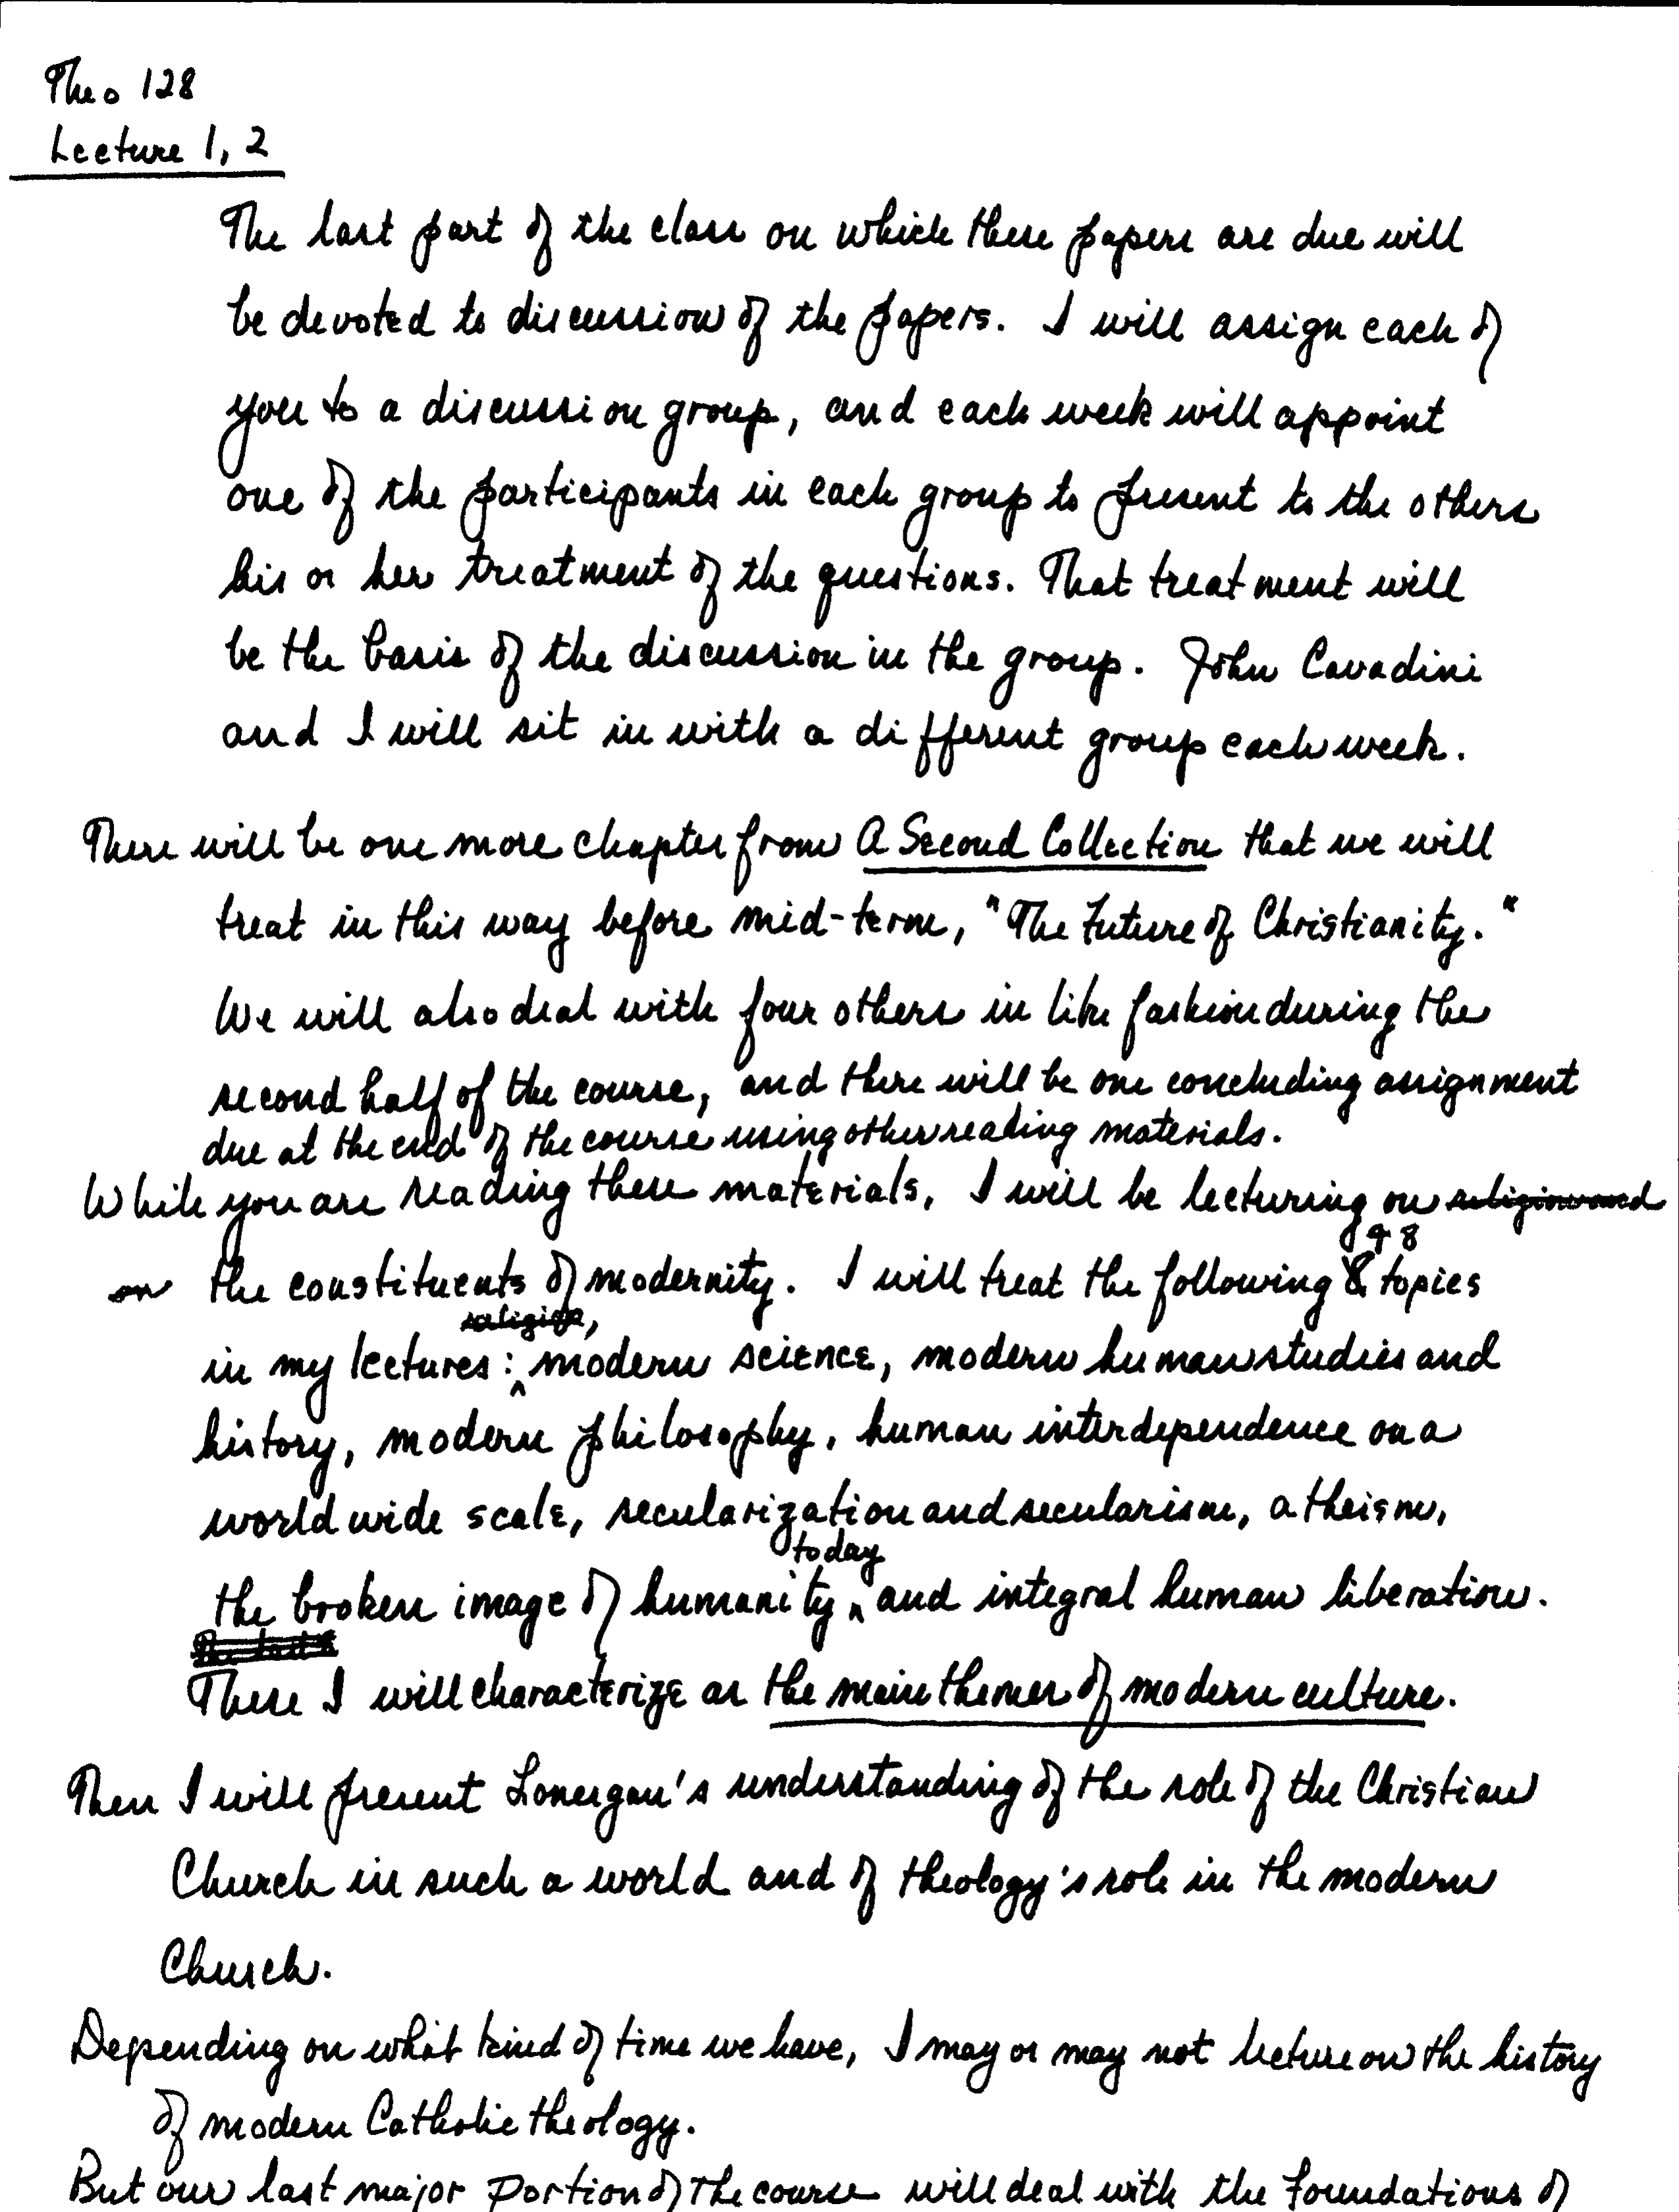 Theo 128
Lecture 1, 2
The last part of the class on which these papers are due will
be devoted to discussion of the papers. I will assign each of
you to a discussion group, and each week will appoint
one of the participants in each group to present to the others
his or her treatment of the questions. That treatment will
be the basis of the discussion in the group. John Cavadini
and I will sit in with a different group each week.
There will be one more chapter from A Second Collection that we will
treat in this way before mid-term, "The Future of Christianity."
We will also deal with four others in like fashion during the
second half of the course, and there will be one concluding assignment
due at the end of the course using other reading materials.
While you are reading these materials, I will be lecturing on religion and
on the constituents of modernity. I will treat the following 8 topics
religion,
in my lectures: modern science, modern human studies and
history, modern philosophy, human interdependence on a
worldwide scale, secularization and secularism, atheism,
today
the broken image of humanity and integral human liberation.
These I will characterize as the main themes of modern culture.
Then I will present Lonergan's understanding of the role of the Christian
Church in such a world and of theology's role in the modern
Church.
Depending on what kind of time we have, I may or may not lecture on the history
of modern Catholic theology.
But our last major portion of the course will deal with the foundations of